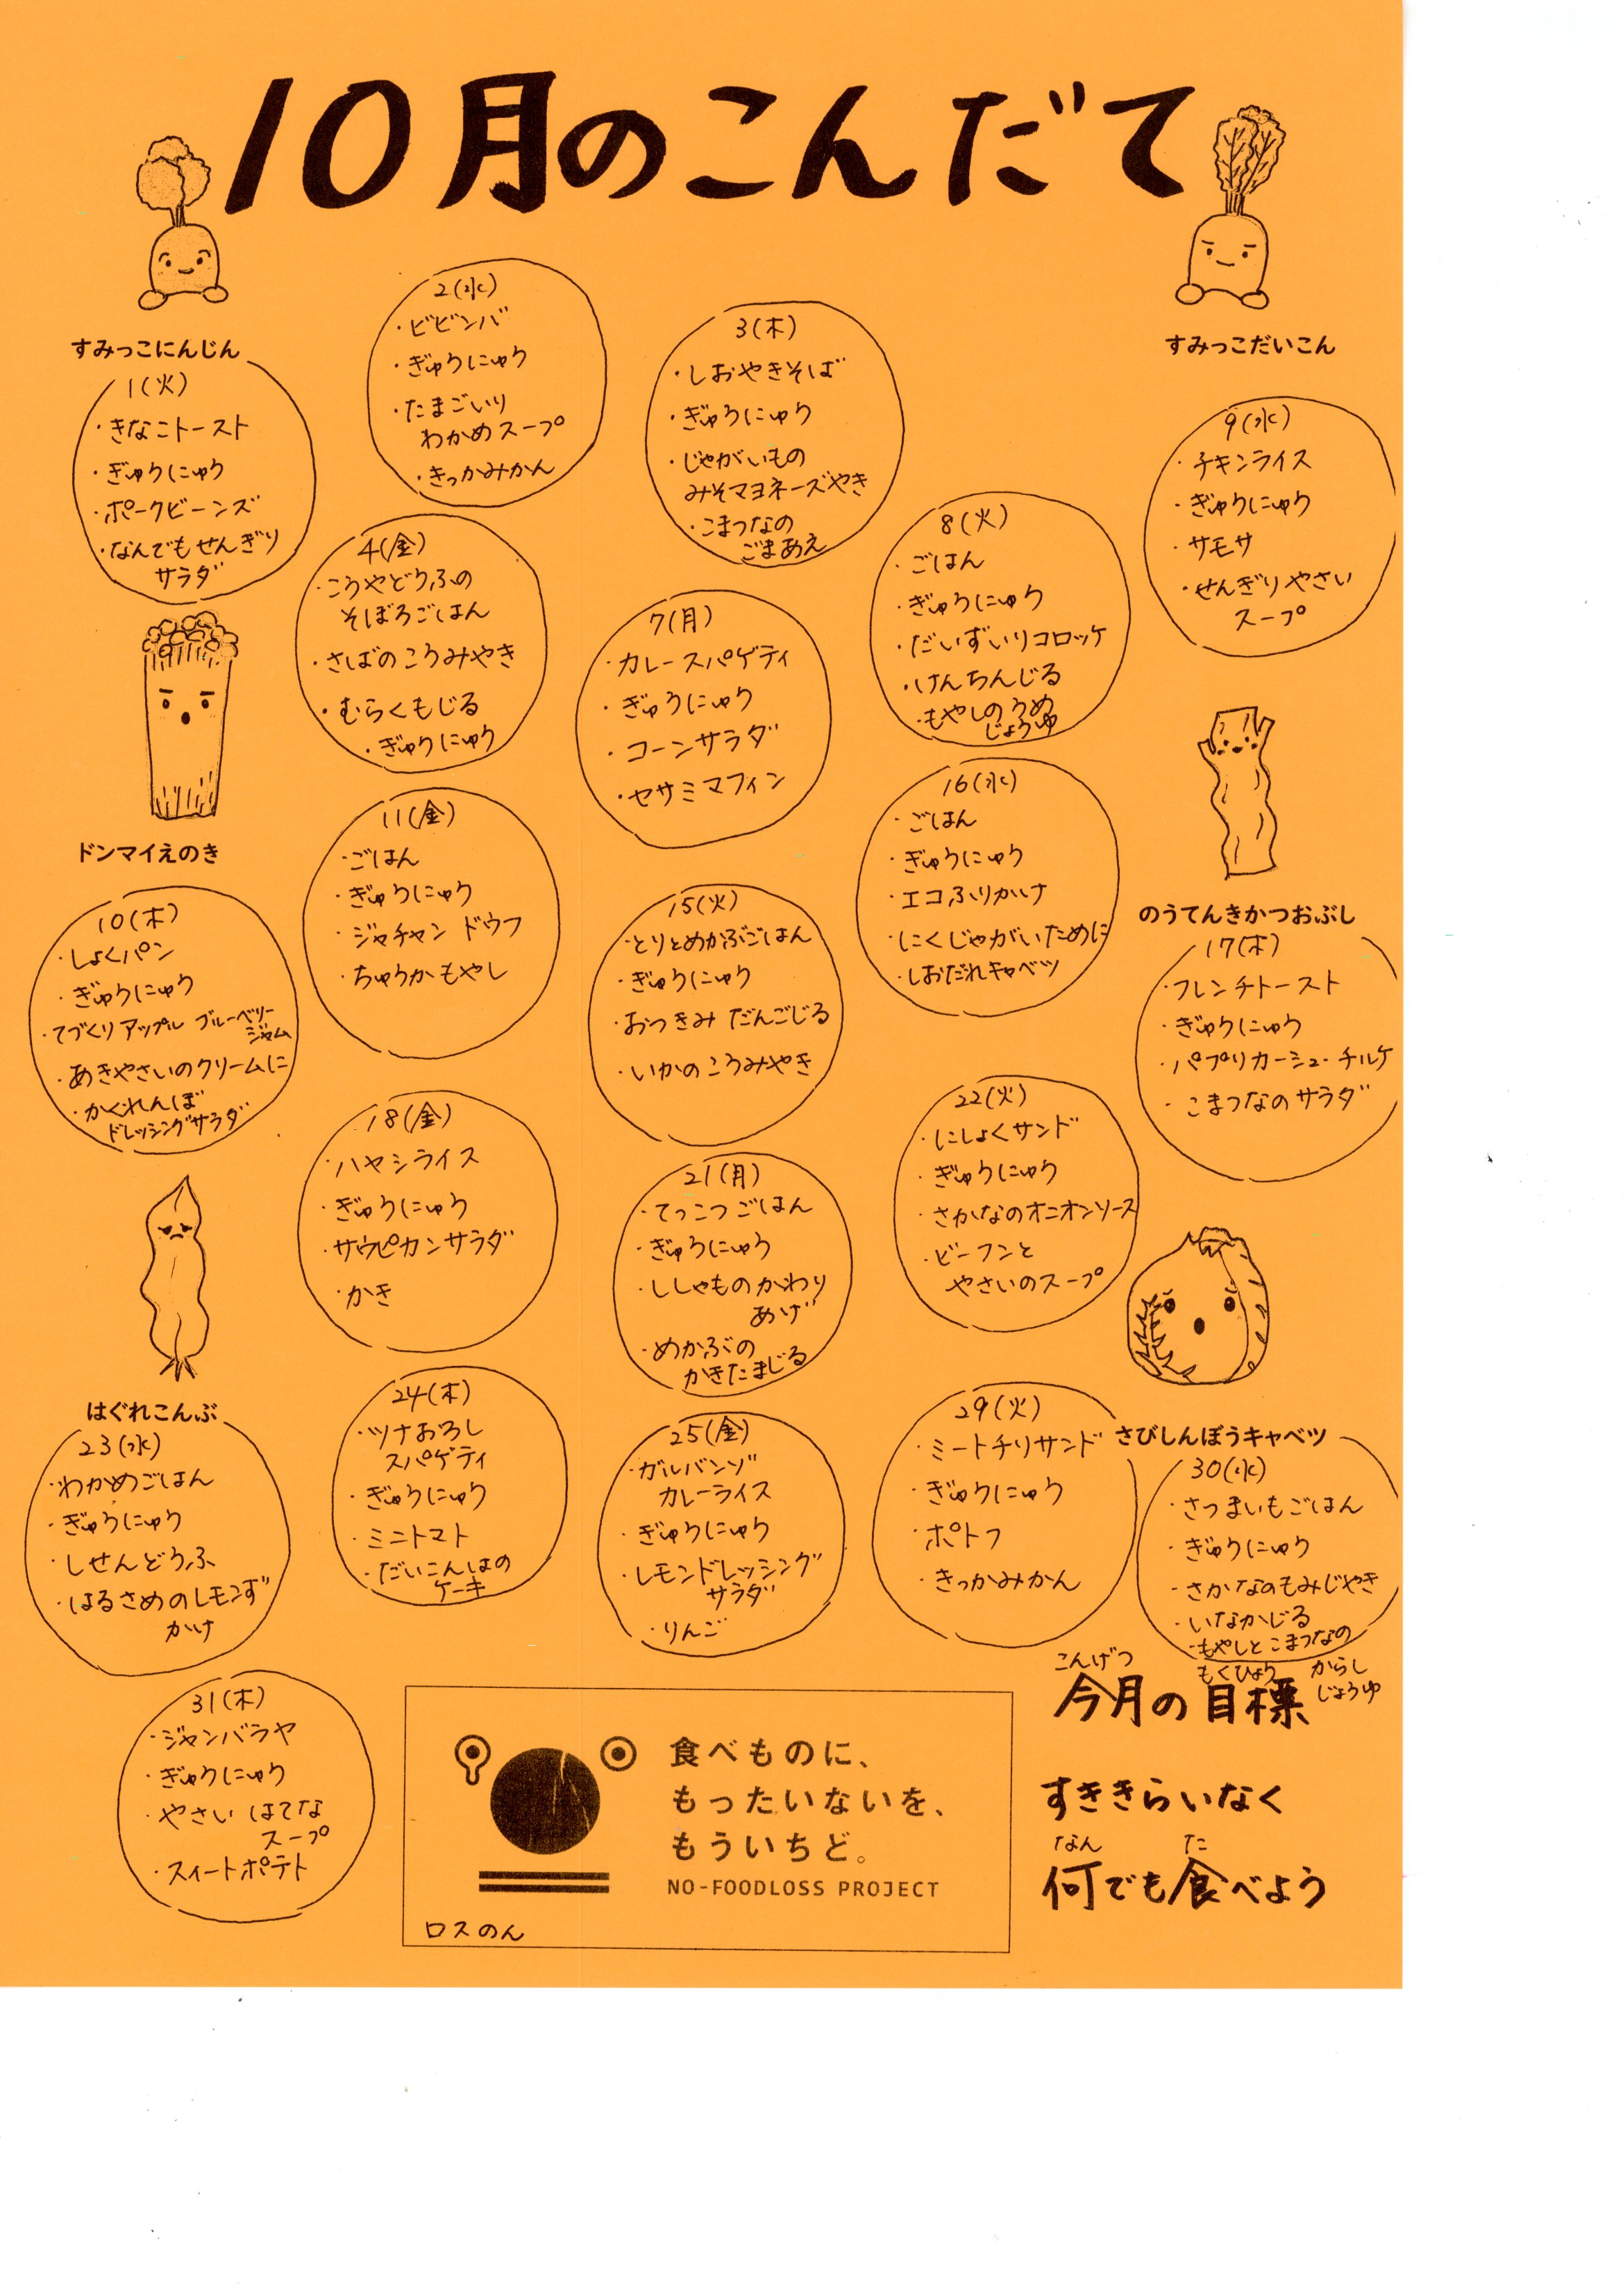 10月のこんだて
すみっこにんじん
すみっこだいこん
1(火)
・きなこトースト
・ぎゅうにゅう
・ポークビーンズ
・なんでもせんぎり
サラダ
2(水)
・ビビンバ
・ぎゅうにゅう
・たまごいり
わかめスープ
・きっかみかん
3(木)
・しおやきそば
・ぎゅうにゅう
・じゃがいもの
みそマヨネーズやき
・こまつなの
ごまあえ
4(金)
・こうやどうふの
そぼろごはん
・さばのこうみやき
・むらくもじる
・ぎゅうにゅう
7(月)
・カレースパゲティ
・ぎゅうにゅう
・コーンサラダ
・セサミマフィン
8(火)
・ごはん
・ぎゅうにゅう
・だいずいりコロッケ
・けんちんじる
・もやしのうめ
じょうゆ
9(水)
・チキンライス
・ぎゅうにゅう
・サモサ
・せんぎりやさい
スープ
ドンマイえのき
のうてんきかつおぶし
10(木)
・しょくパン
・ぎゅうにゅう
・てづくりアップル ブルーベリー
ジャム
・あきやさいのクリームに
・かくれんぼ
ドレッシングサラダ
11(金)
・ごはん
・ぎゅうにゅう
・ジャチャン ドウフ
・ちゅうかもやし
15(火)
・とりとめかぶごはん
・ぎゅうにゅう
・おつきみ だんごじる
・いかのこうみやき
16(水)
・ごはん
・ぎゅうにゅう
・エコふりかけ
・にくじゃがいために
・しおだれキャベツ
17(木)
・フレンチトースト
・ぎゅうにゅう
・パプリカーシュ・チルケ
・こまつなのサラダ
18(金)
・ハヤシライス
・ぎゅうにゅう
・サウピカンサラダ
・かき
21(月)
・てっこつごはん
・ぎゅうにゅう
・ししゃものかわり
あげ
・めかぶの
かきたまじる
22(火)
・にしょくサンド
・ぎゅうにゅう
・さかなのオニオンソース
・ビーフンと
やさいのスープ
はぐれこんぶ
さびしんぼうキャベツ
23(水)
・わかめごはん
・ぎゅうにゅう
・しせんどうふ
・はるさめのレモンず
かけ
24(木)
・ツナおろし
スパゲティ
・ぎゅうにゅう
・ミニトマト
・だいこんはの
ケーキ
25(金)
・ガルバンゾ
カレーライス
・ぎゅうにゅう
・レモンドレッシング
サラダ
・りんご
29(火)
・ミートチリサンド
・ぎゅうにゅう
・ポトフ
・きっかみかん
30(水)
・さつまいもごはん
・ぎゅうにゅう
・さかなのもみじやき
・いなかじる
・もやしとこまつなの
からし
じょうゆ
31(木)
・ジャンバラヤ
・ぎゅうにゅう
・やさい はてな
スープ
・スイートポテト
食べものに、
もったいないを、
もういちど。
NO-FOODLOSS PROJECT
ロスのん
こんげつ もくひょう
今月の目標
すききらいなく
なん た
何でも食べよう